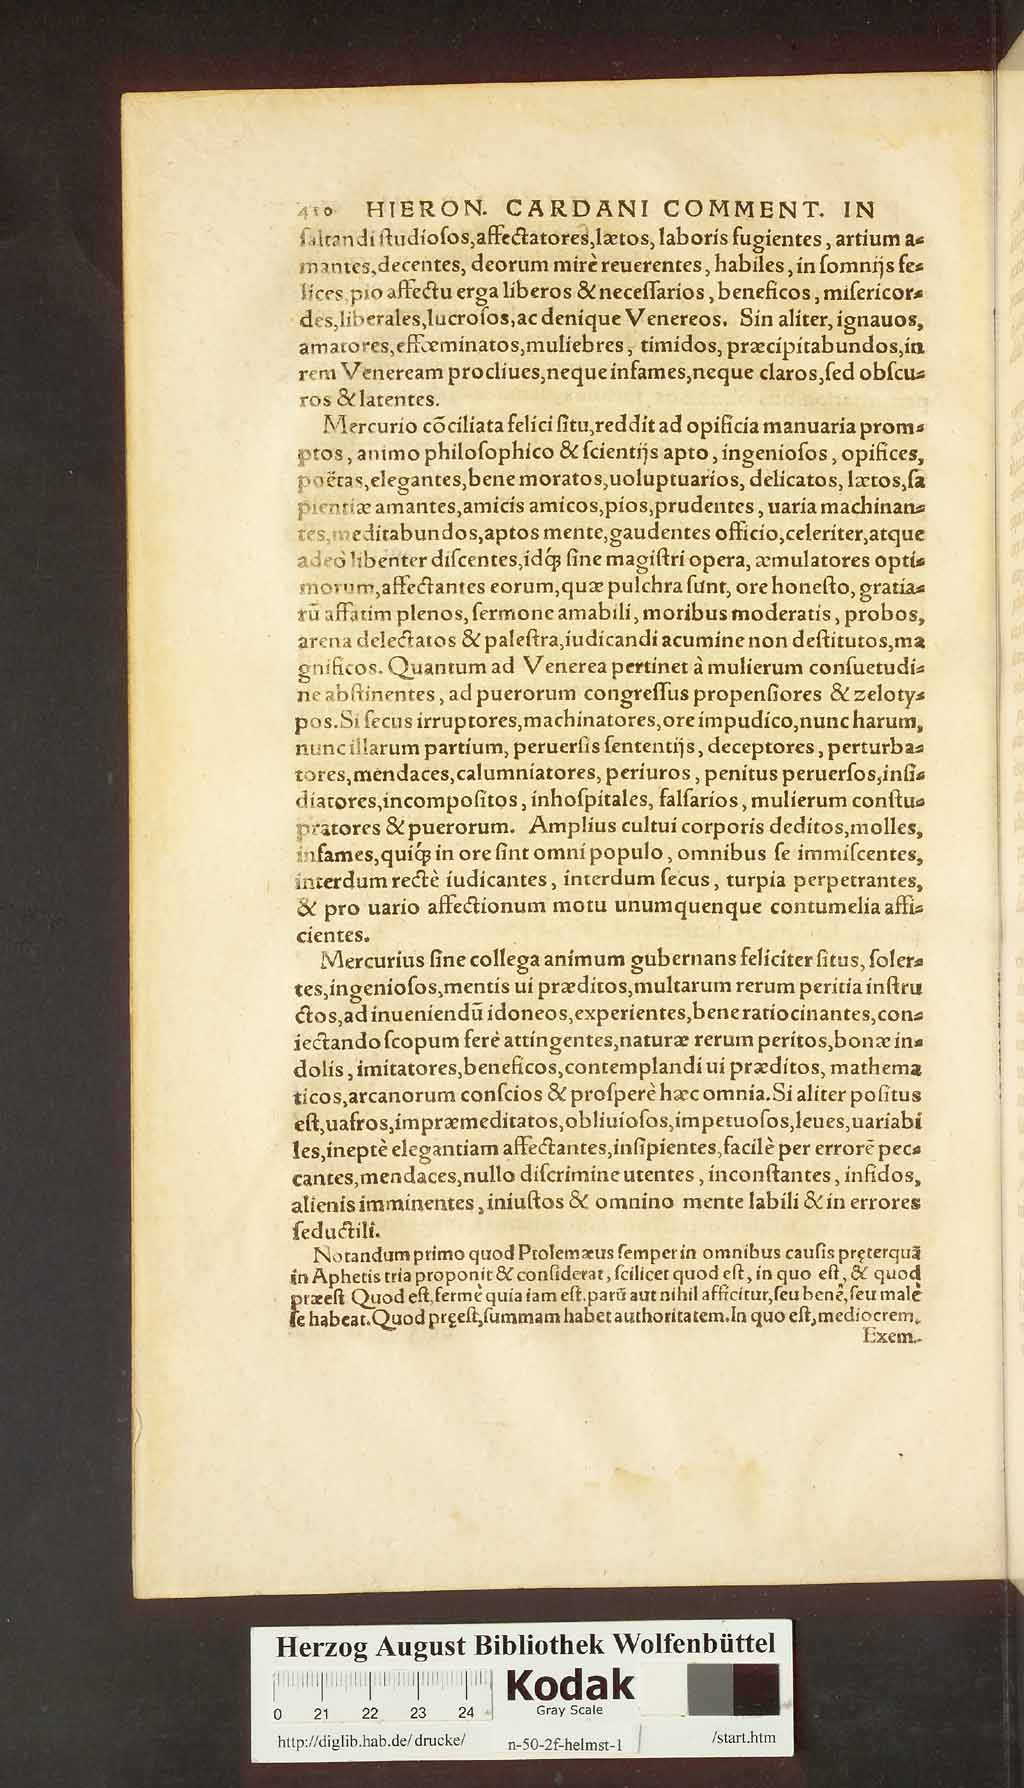 410 HIERON. CARDANI COMMENT. IN
ſaltandi ſtudioſos,affectatores,lætos, laboris fugientes, artium a⸗
mantes,decentes, deorum mirè reuerentes, habiles, in ſomnijs fe⸗
lices,pio affectu erga liberos & neceſſarios, beneficos, miſericor⸗
des,liberales,lucroſos,ac denique Venereos. Sin aliter, ignauos,
amatores,effœminatos,muliebres, timidos, præcipitabundos,in
rem Veneream procliues,neque infames,neque claros,ſed obſcu⸗
ros & latentes.
Mercurio cõciliata felici ſitu,reddit ad opificia manuaria prom⸗
ptos, animo philoſophico & ſcientijs apto, ingenioſos, opifices,
poëtas,elegantes,bene moratos,uoluptuarios, delicatos, lætos,ſa
pientiæ amantes,amicis amicos,pios,prudentes, uaria machinan⸗
tes,meditabundos,aptos mente,gaudentes officio,celeriter,atque
adeò libenter diſcentes,idq́ꝫ ſine magiſtri opera, æmulatores opti⸗
morum,affectantes eorum,quæ pulchra ſunt, ore honeſto, gratia⸗
rũ affatim plenos, ſermone amabili, moribus moderatis, probos,
arena delectatos & paleſtra,iudicandi acumine non deſtitutos,ma
gnificos. Quantum ad Venerea pertinet à mulierum conſuetudi⸗
ne abſtinentes, ad puerorum congreſſus propenſiores & zeloty⸗
pos.Si ſecus irruptores,machinatores,ore impudico,nunc harum,
nunc illarum partium, peruerſis ſententijs, deceptores, perturba⸗
tores,mendaces,calumniatores, periuros, penitus peruerſos,inſi⸗
diatores,incompoſitos, inhoſpitales, falſarios, mulierum conſtu⸗
pratores & puerorum. Amplius cultui corporis deditos,molles,
infames,quiq́ꝫ in ore ſint omni populo, omnibus ſe immiſcentes,
interdum rectè iudicantes, interdum ſecus, turpia perpetrantes,
& pro uario affectionum motu unumquenque contumelia affi⸗
cientes.
Mercurius ſine collega animum gubernans feliciter ſitus, ſoler⸗
tes,ingenioſos,mentis ui præditos,multarum rerum peritia inſtru
ctos,ad inueniendũ idoneos,experientes,bene ratiocinantes,con⸗
iectando ſcopum ferè attingentes,naturæ rerum peritos,bonæ in⸗
dolis, imitatores,beneficos,contemplandi ui præditos, mathema
ticos,arcanorum conſcios & proſperè hæc omnia.Si aliter poſitus
eſt,uafros,impræmeditatos,obliuioſos,impetuoſos,leues,uariabi
les,ineptè elegantiam affectantes,inſipientes,facilè per errorẽ pec⸗
cantes,mendaces,nullo diſcrimine utentes, inconſtantes, infidos,
alienis imminentes, iniuſtos & omnino mente labili & in errores
ſeductili.
Notandum primo quod Ptolemæus ſemper in omnibus cauſis pręterquã
in Aphetis tria proponit & conſiderat, ſcilicet quod eſt, in quo eſt, & quod
præeſt Quod eſt,fermè quia iam eſt,parũ aut nihil afficitur,ſeu benè,ſeu malè
ſe habeat.Quod pręeſt,ſummam habet authoritatem.In quo eſt,mediocrem.
Exem-
Herzog August Bibliothek Wolfenbüttel
Kodak
Gray Scale
0 21 22 23 24
http://diglib.hab.de/drucke/ n-50-2f-helmst-1 /start.htm